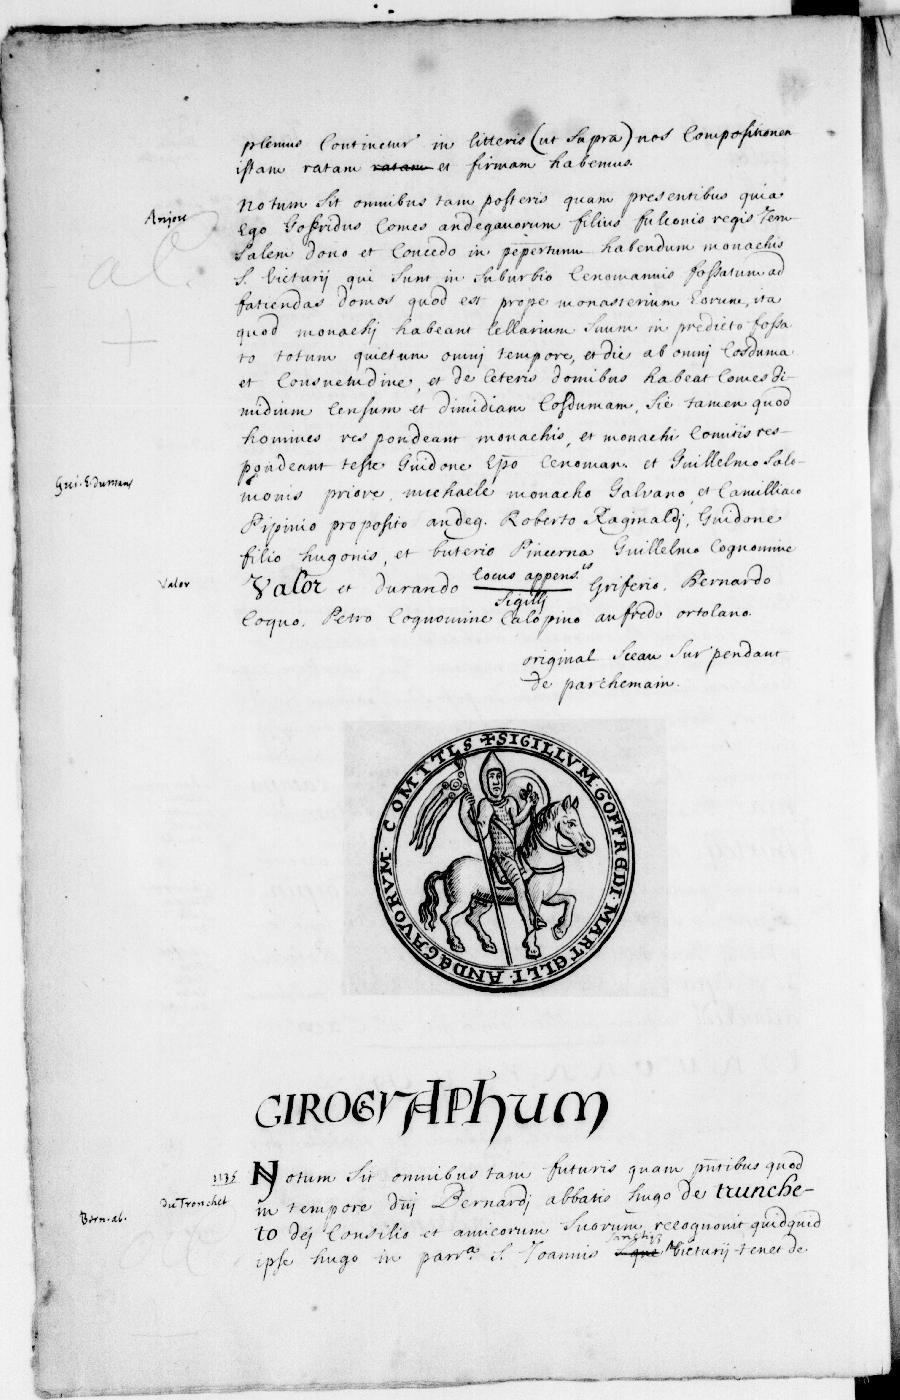 plenius continetur in litteris (ut supra) nos compositionem
istam ratam ratam et firmam habemus.
Anjou
Notum sit omnibus tam posteris quam presentibus quia
Ego Gosfridus Comes andegavorum filius fulconis regis Jeru-
salem dono et Concedo in pepertuum habendum monachis
S. Victurij qui sunt in suburbio Cenomannis fossatum ad
fatiendas domos quod est prope monasterium Eorum, ita
quod monachj habeant Cellarium suum in predicto fossa
to totum quietum omnj tempore, et die ab omnj Cosduma
et Consuetudine, et de Ceteris domibus habeat Comes di-
midium Censum et dimidiam Cosdumam, sic tamen quod
homines respondeant monachis, et monachi Comitis res-
Gui. E. du mans
pondeant teste Guidone Epo Cenoman. et Guillelmo Salo-
monis priore, michaele monacho Galvano, et Camilliaco
Pipinio proposito andeg. Roberto Raginaldj, Guidone
filio hugonis, et buterio Pincerna Guillelmo Cognomine
Valor
Valor et durando locus appensis sigillj Griferio. Bernardo
Coquo. Petro Cognomine Calopino aufredo ortolano.
original sceau sur pendant
de parchemain.
+SIGILLVM·GOFFREDI·MARTELLI·ANDEGAVORVM·COMITIS
GIROGRAPhum
1136
Notum sit omnibus tam futuris quam pntibus quod
Bern. ab.
du Tronchet
in tempore dnj Bernardj abbatis hugo de trunche-
to dej Consilio et amicorum suorum recognovit quidquid
ipse hugo in parra. S. Joannis sanctiq; Victurij tenet de